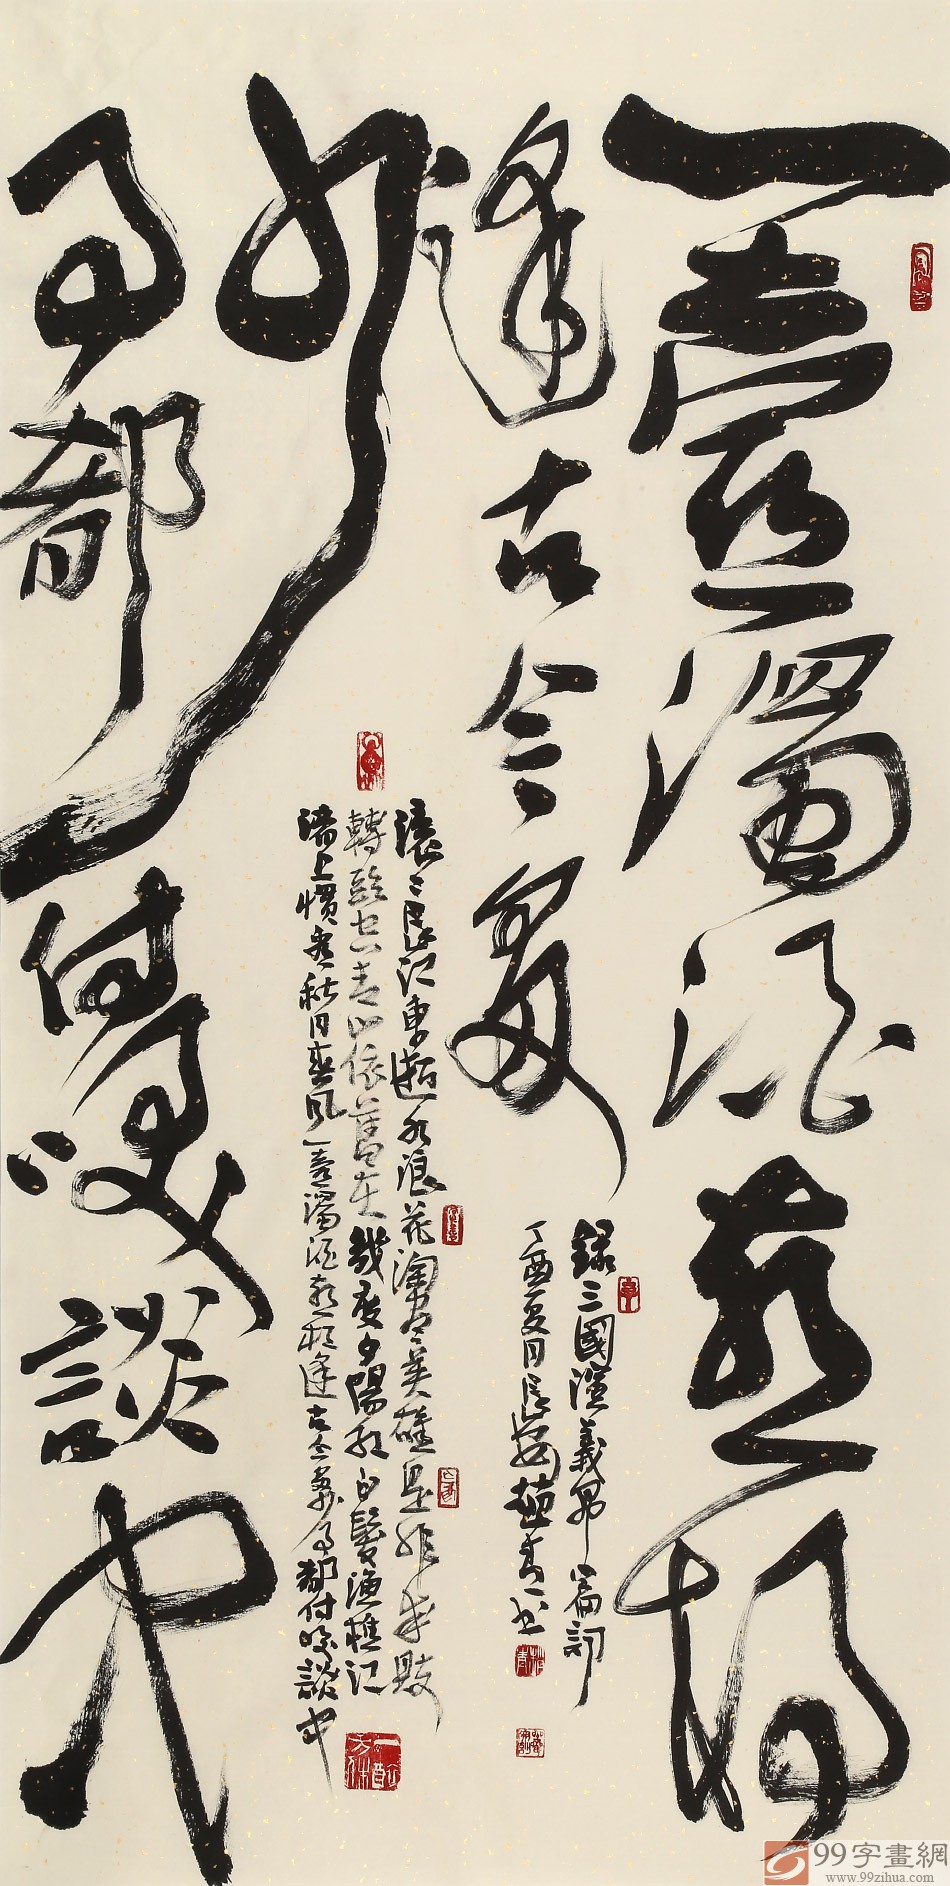 一壺濁酒喜相
逢古今多
少
事都付笑談中
錄三國演義開篇詞
丁酉夏月長安趙青書
滾滾長江東逝水浪花淘盡英雄是非成敗
轉頭空青山依舊在幾度夕陽紅白髮漁樵江
渚上慣看秋月春風一壺濁酒喜相逢古今多少事都付笑談中
99字畫網
www.99zihua.com